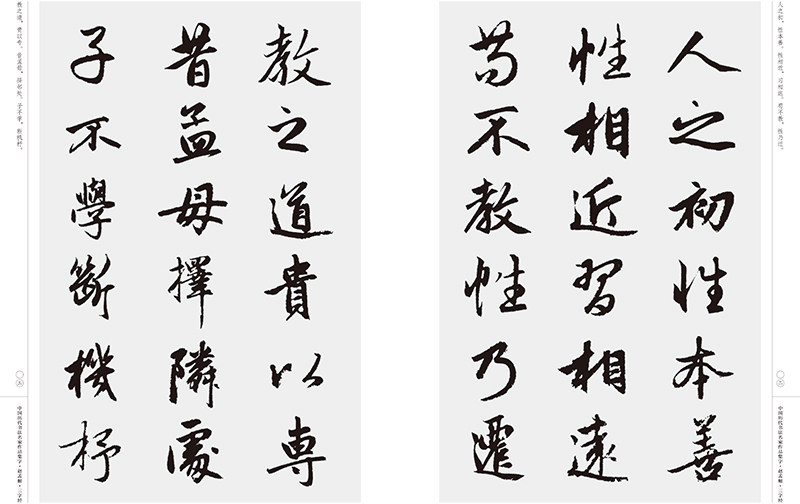 人之初，性本善。性相近，习相远。苟不教，性乃迁。
中国历代书法名家作品集字·赵孟頫·三字经
人之初性本善
性相近習相遠
苟不教性乃遷
教之道貴以專
昔孟母擇隣處
子不學斷機杼
教之道，贵以专。昔孟母，择邻处。子不学，断机杼。
中国历代书法名家作品集字·赵孟頫·三字经